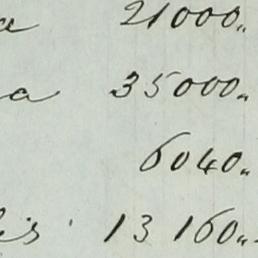 a 21000„
a 35000„
6040„
is 13160„